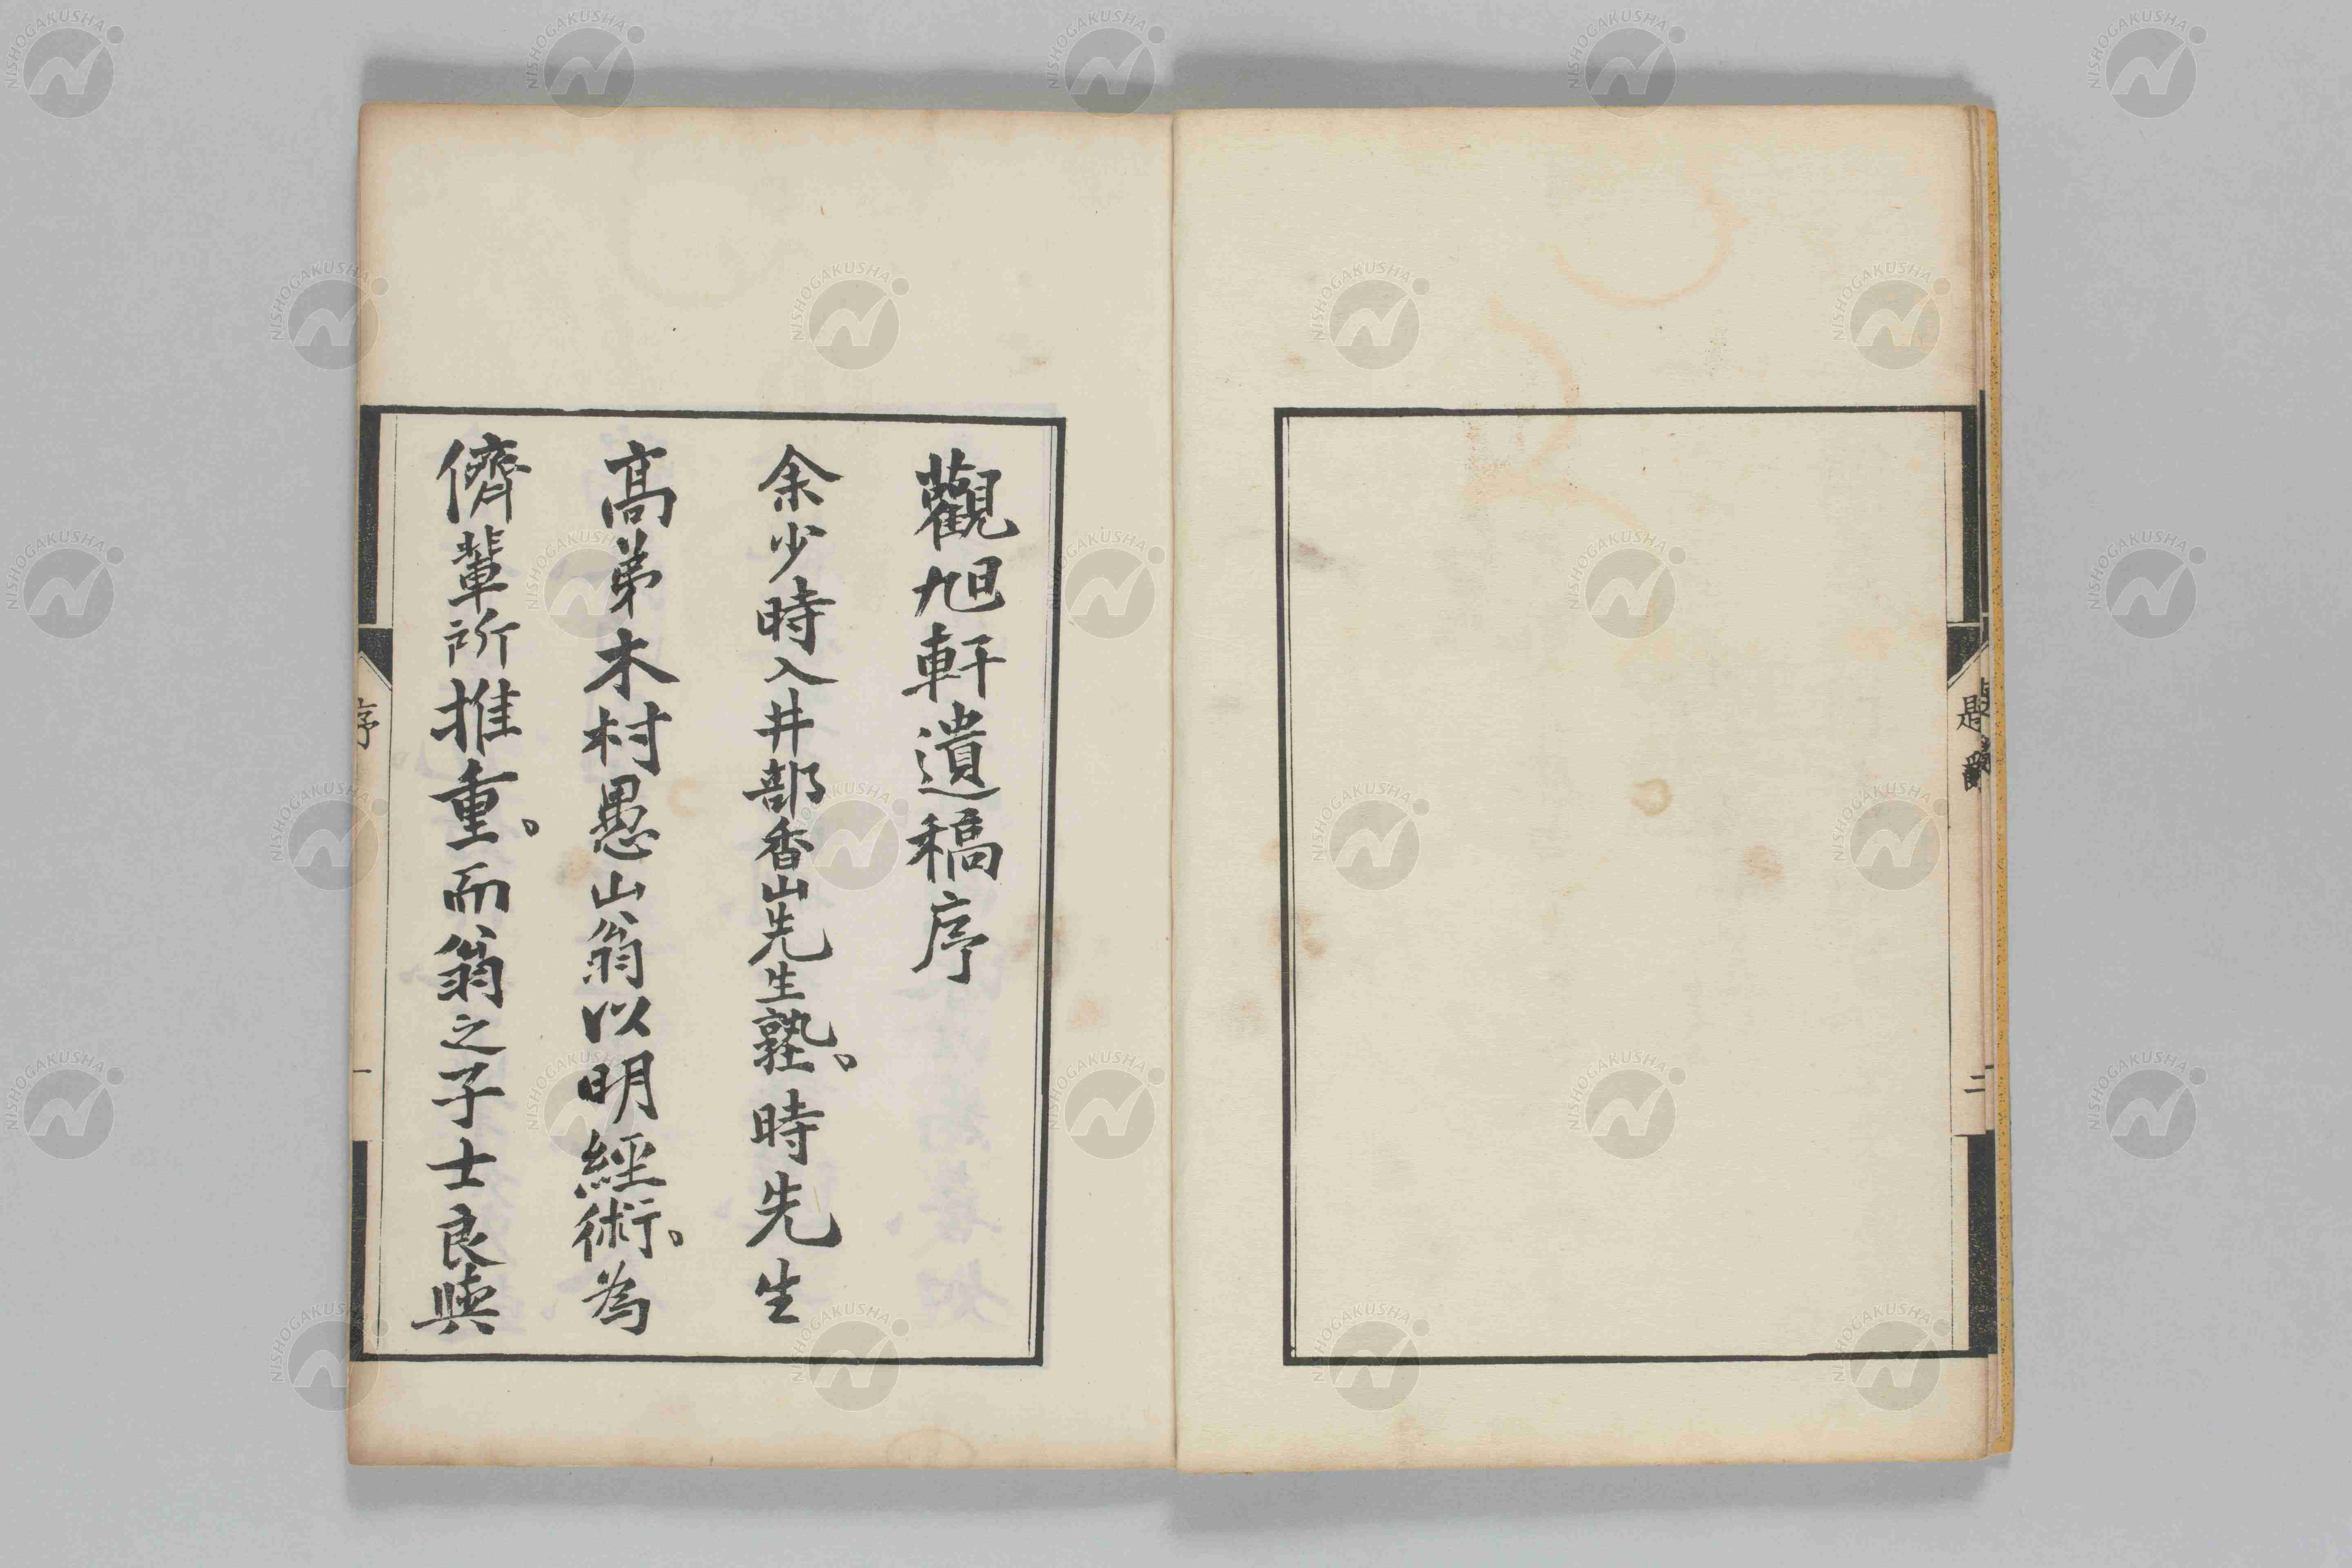 觀旭軒遺稿序
余少時入井部香山先生塾。時先生
高弟木村愚山翁以明經術。為
儕輩所推重。而翁之子士良與
序
一
二
NISHOGAKUSHA